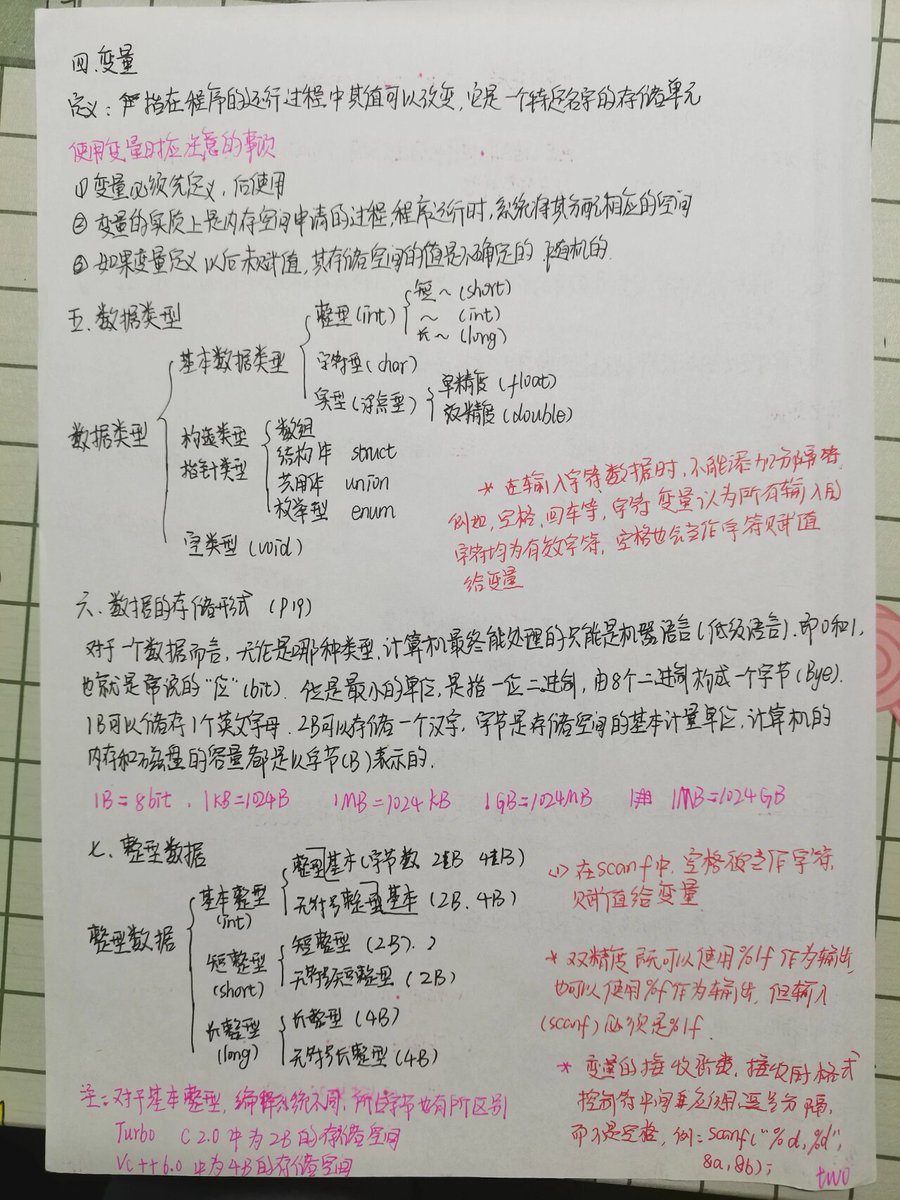 四.变量
定义：指在程序的运行过程中其值可以改变，它是一个特定名字的存储单元
使用变量时应注意的事项
① 变量必须先定义，后使用
② 变量的实质上是内存空间申请的过程，程序运行时，系统将其分配相应的空间
③ 如果变量定义以后未赋值，其存储空间的值是不确定的 随机的.
五、数据类型
数据类型
基本数据类型
整型(int)
短～(short)
～ (int)
长～(long)
字符型(char)
实型(浮点型)
单精度(float)
双精度(double)
构造类型
指针类型
数组
结构体 struct
共用体 union
枚举型 enum
空类型(void)
* 在输入字符数据时，不能添加分隔符
例如，空格，回车等，字符变量认为所有输入的
字符均为有效字符，空格也会当作字符赋值
给变量
六、数据的存储形式 (P19)
对于一个数据而言，无论是哪种类型，计算机最终能处理的只能是机器语言(低级语言).即0和1,
也就是常说的“位”(bit). 位是最小的单位，是指一位二进制，由8个二进制构成一个字节(Bye).
1B可以储存1个英文字母.2B可以存储一个汉字，字节是存储空间的基本计量单位，计算机的
内存和磁盘的容量都是以字节(B)表示的.
1B=8bit. 1KB=1024B 1MB=1024KB 1GB=1024MB 1MB=1024GB
七、整型数据
整型数据
基本整型
(int)
整型基本(字节数 2B 4B)
无符号整型基本 (2B、4B)
短整型
(short)
短整型 (2B).)
无符号短整型 (2B)
长整型
(long)
长整型 (4B)
无符号长整型(4B)
(1) 在scanf中，空格被当作字符,
赋值给变量
* 双精度既可以使用%lf作为输出
也可以使用%f作为输出，但输入
(scanf)必须是%lf.
* 变量的接收，接收时格式
控制符中间要用逗号分隔，
而不是空格，例：scanf("%d,%d",
&a,&b);
注：对于基本整型，编译系统不同，所占字节也有所区别
Turbo C 2.0 中为2B的存储空间
Vc++6.0 中为4B的存储空间
two